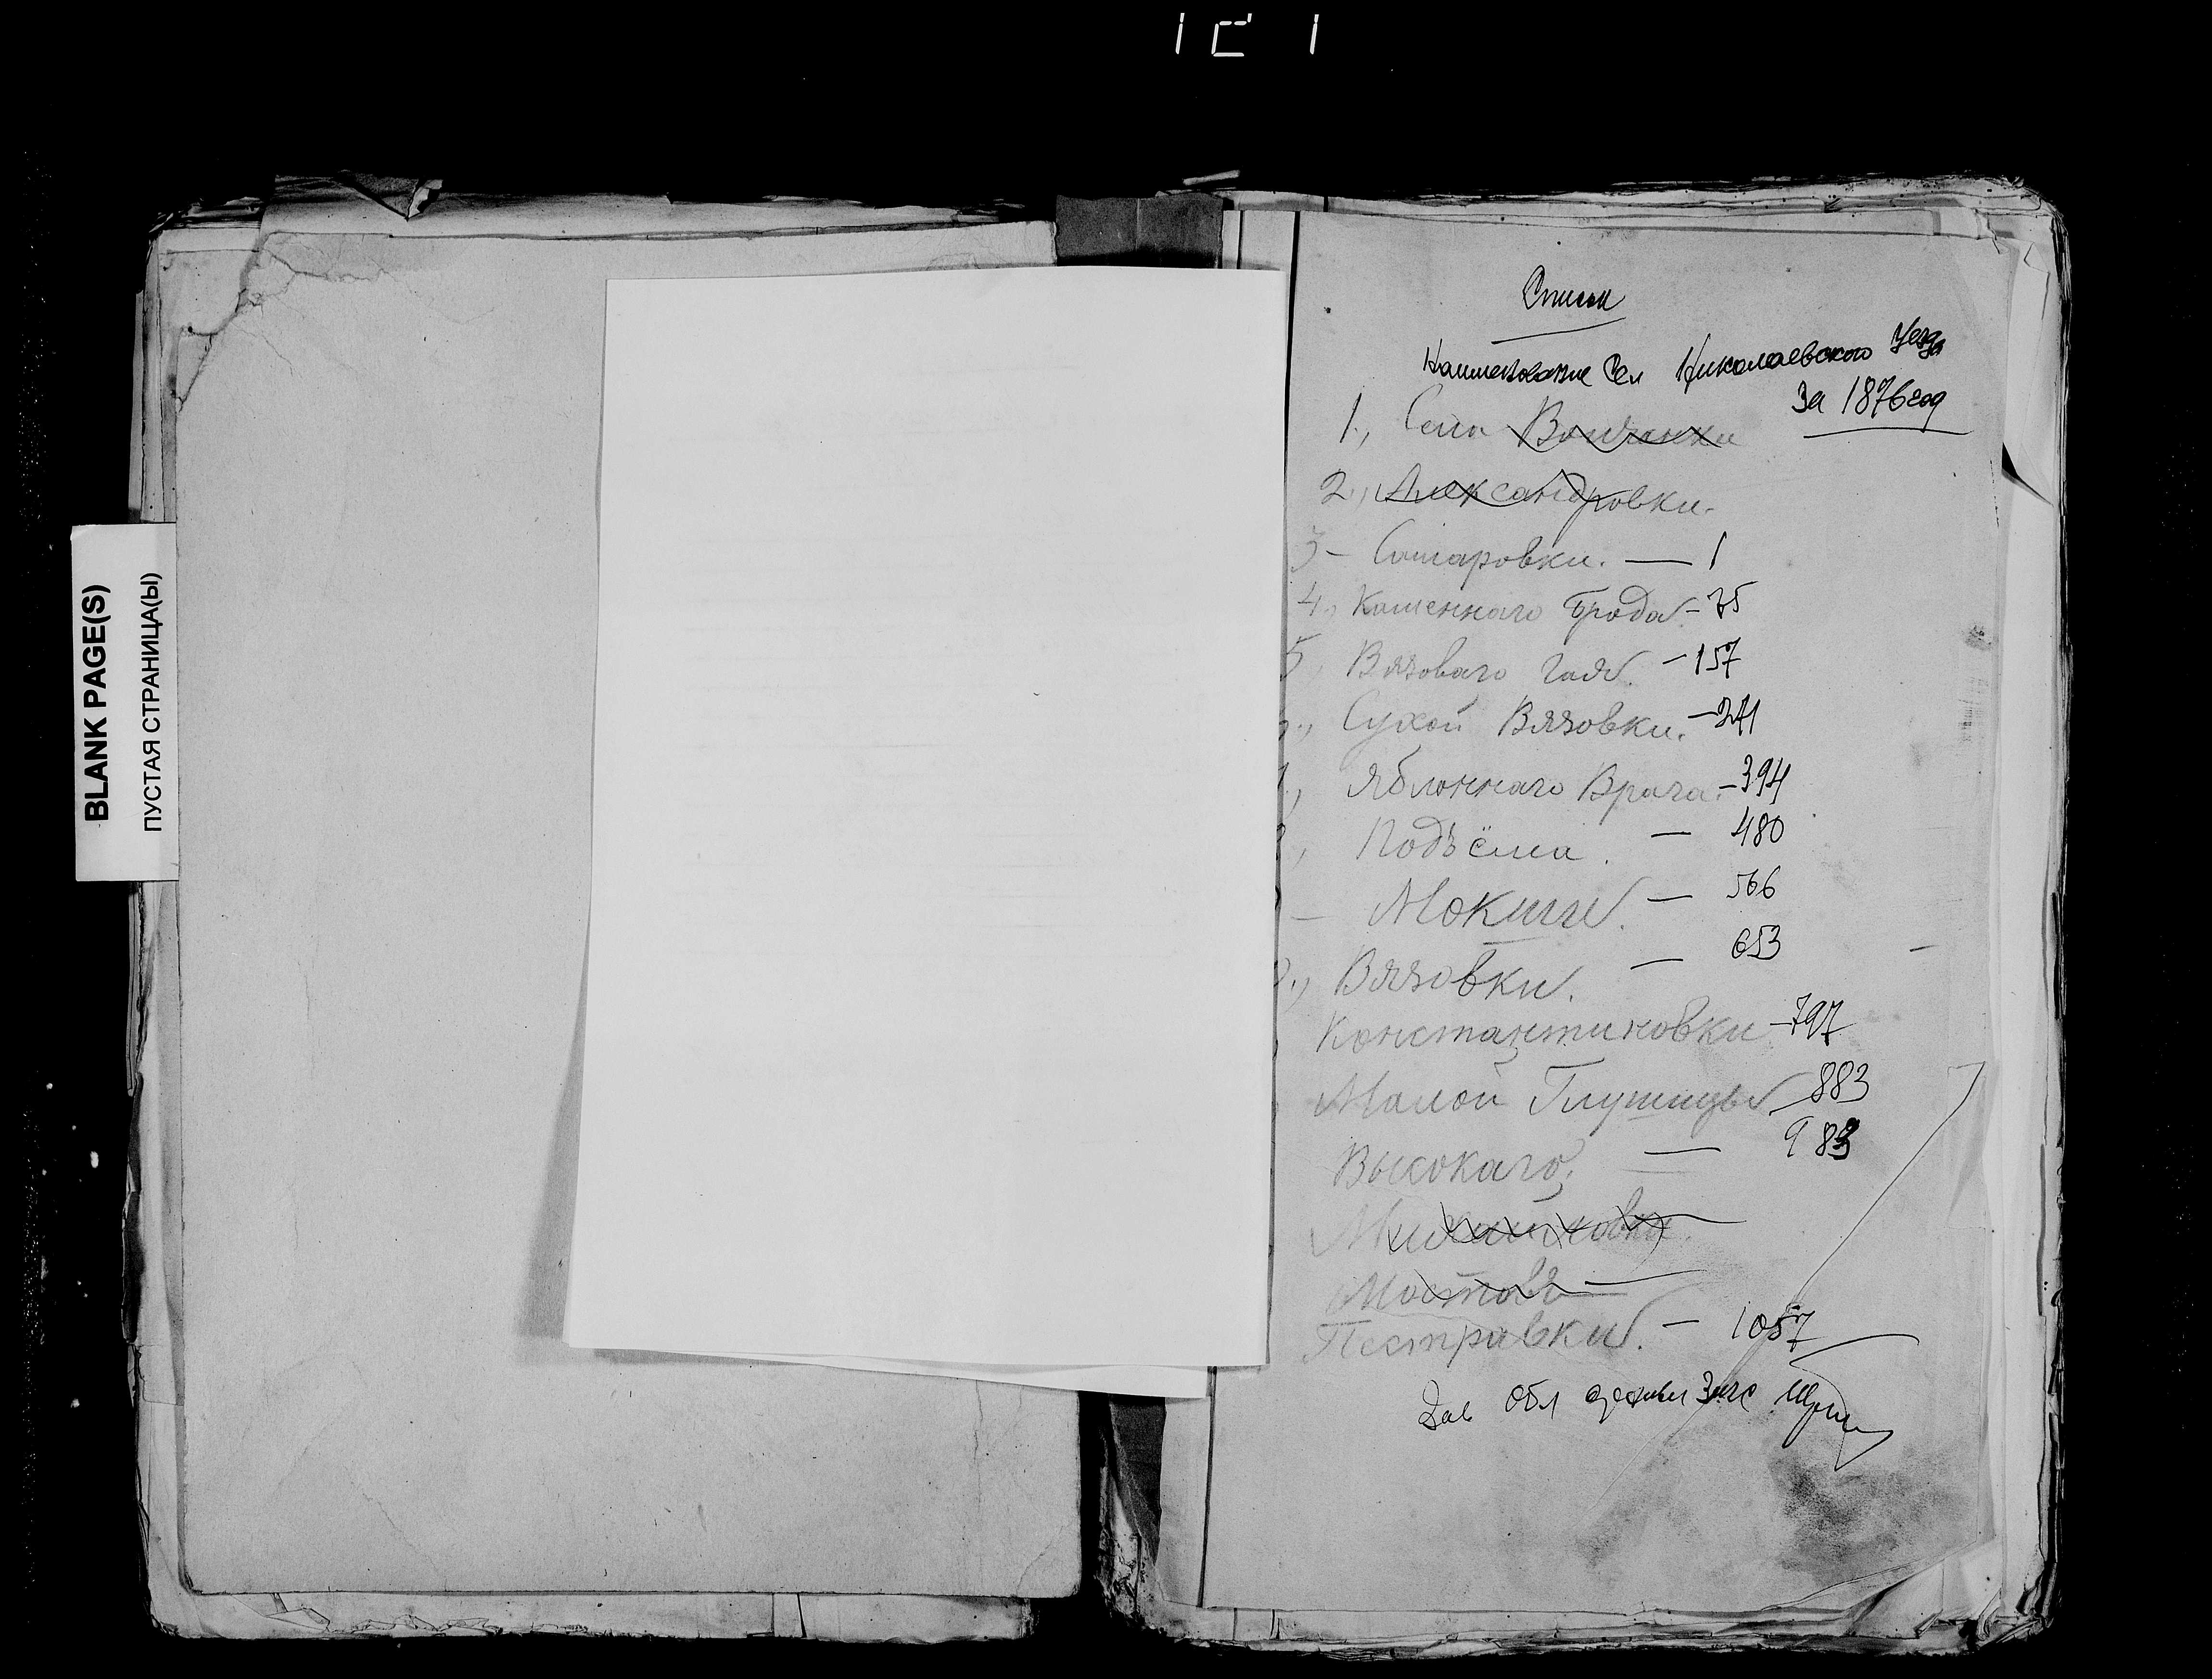 BLANK PAGE(S)
ПУСТАЯ СТРАНИЦА(Ы)
Список
Наименование Сел Николаевского Уезда
За 1876 год
1., Села
2., Александровки.
3 - Самаровки. — 1
4., Каменнаго Брода. - 75
5, Вязоваго Гая. - 157
Сухой Вязовки. - 241
Яблоннаго Врага. - 394
Подъёма. — 480
Мокши. — 566
Вязовки. — 653
Константиновки - 797
Малой Глушицы 883
Высокаго, — 983
Михайловки
Пестравки. — 1057
Зав Обл Загс